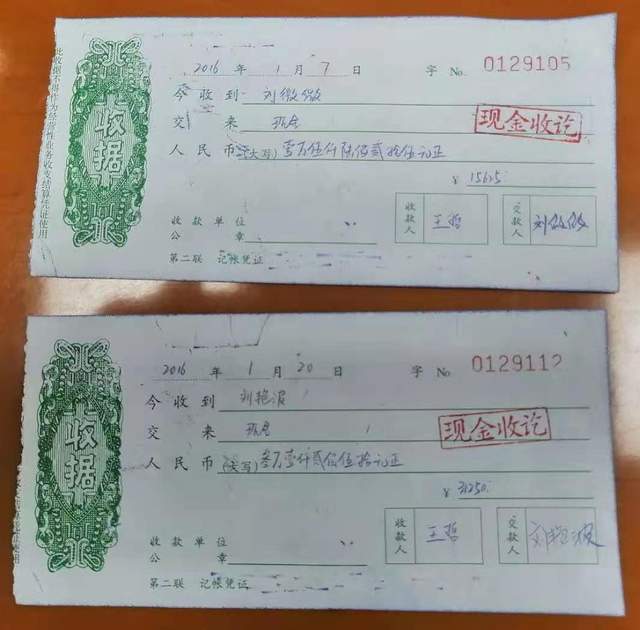 此收据不得作为经营性业务收支结算凭证使用
收据
2016 年 1 月 7 日 字 No. 0129105
今收到 刘微微
交来 现金
现金收讫
人民币(大写) 壹万伍仟陆佰贰拾伍元正
¥ 15625
收款单位
公章
收款人 王哲
交款人 刘微微
第二联 记帐凭证
收据
2016 年 1 月 20 日 字 No 0129112
今收到 刘艳波
交来 现金
现金收讫
人民币(大写) 叁万壹仟贰佰伍拾元正
¥ 31250
收款单位
公章
收款人 王哲
交款人 刘艳波
第二联 记帐凭证